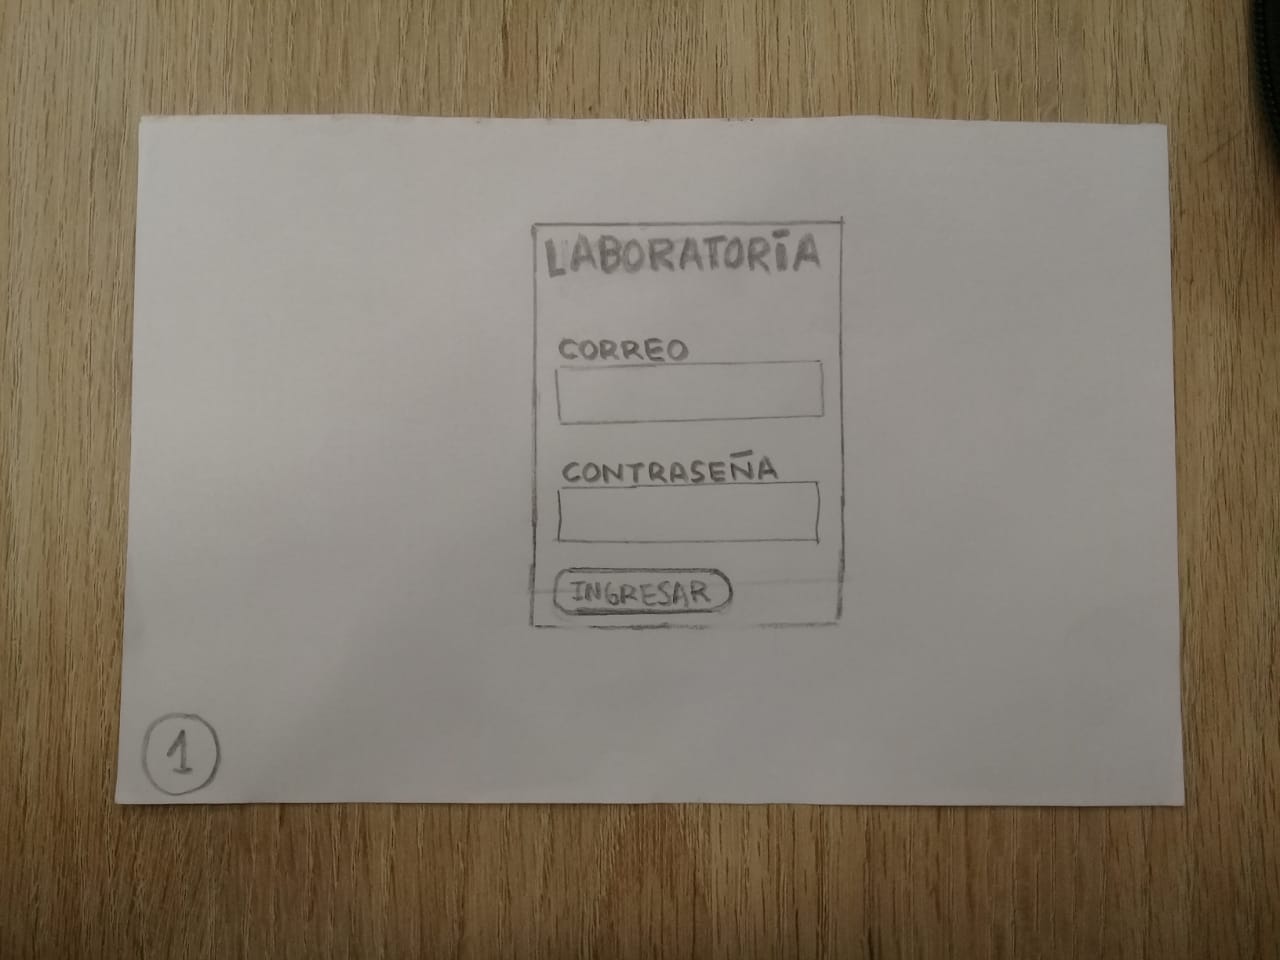 LABORATORÍA
CORREO
CONTRASEÑA
INGRESAR
1